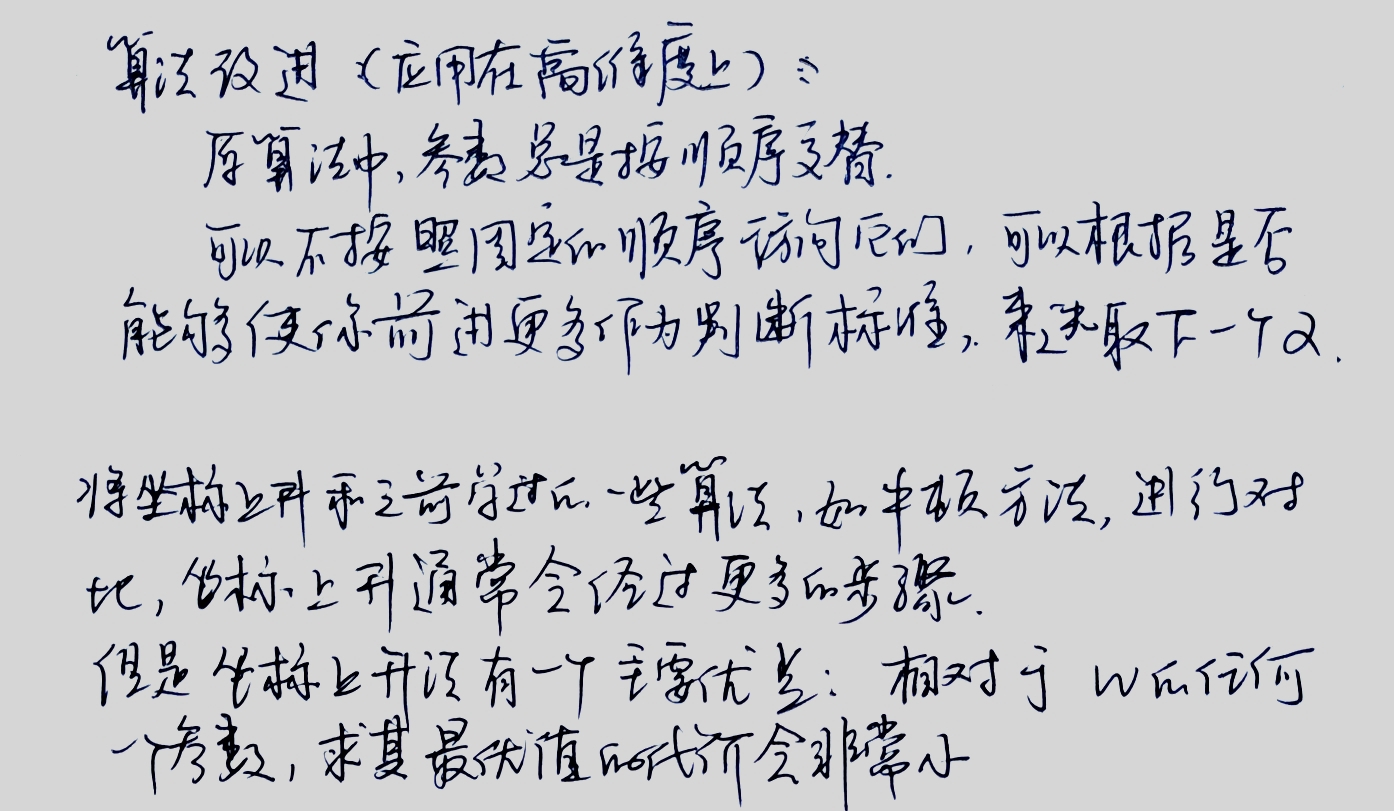 算法改进（应用在高维度上）：
原算法中，参数总是按顺序交替.
可以不按照固定的顺序访问它们，可以根据是否
能够使你前进更多作为判断标准，来选取下一个α.
将坐标上升和之前学过的一些算法，如牛顿方法，进行对
比，坐标上升通常会经过更多的步骤.
但是坐标上升法有一个主要优点：相对于 W的任何
一个参数，求其最优值的代价会非常小